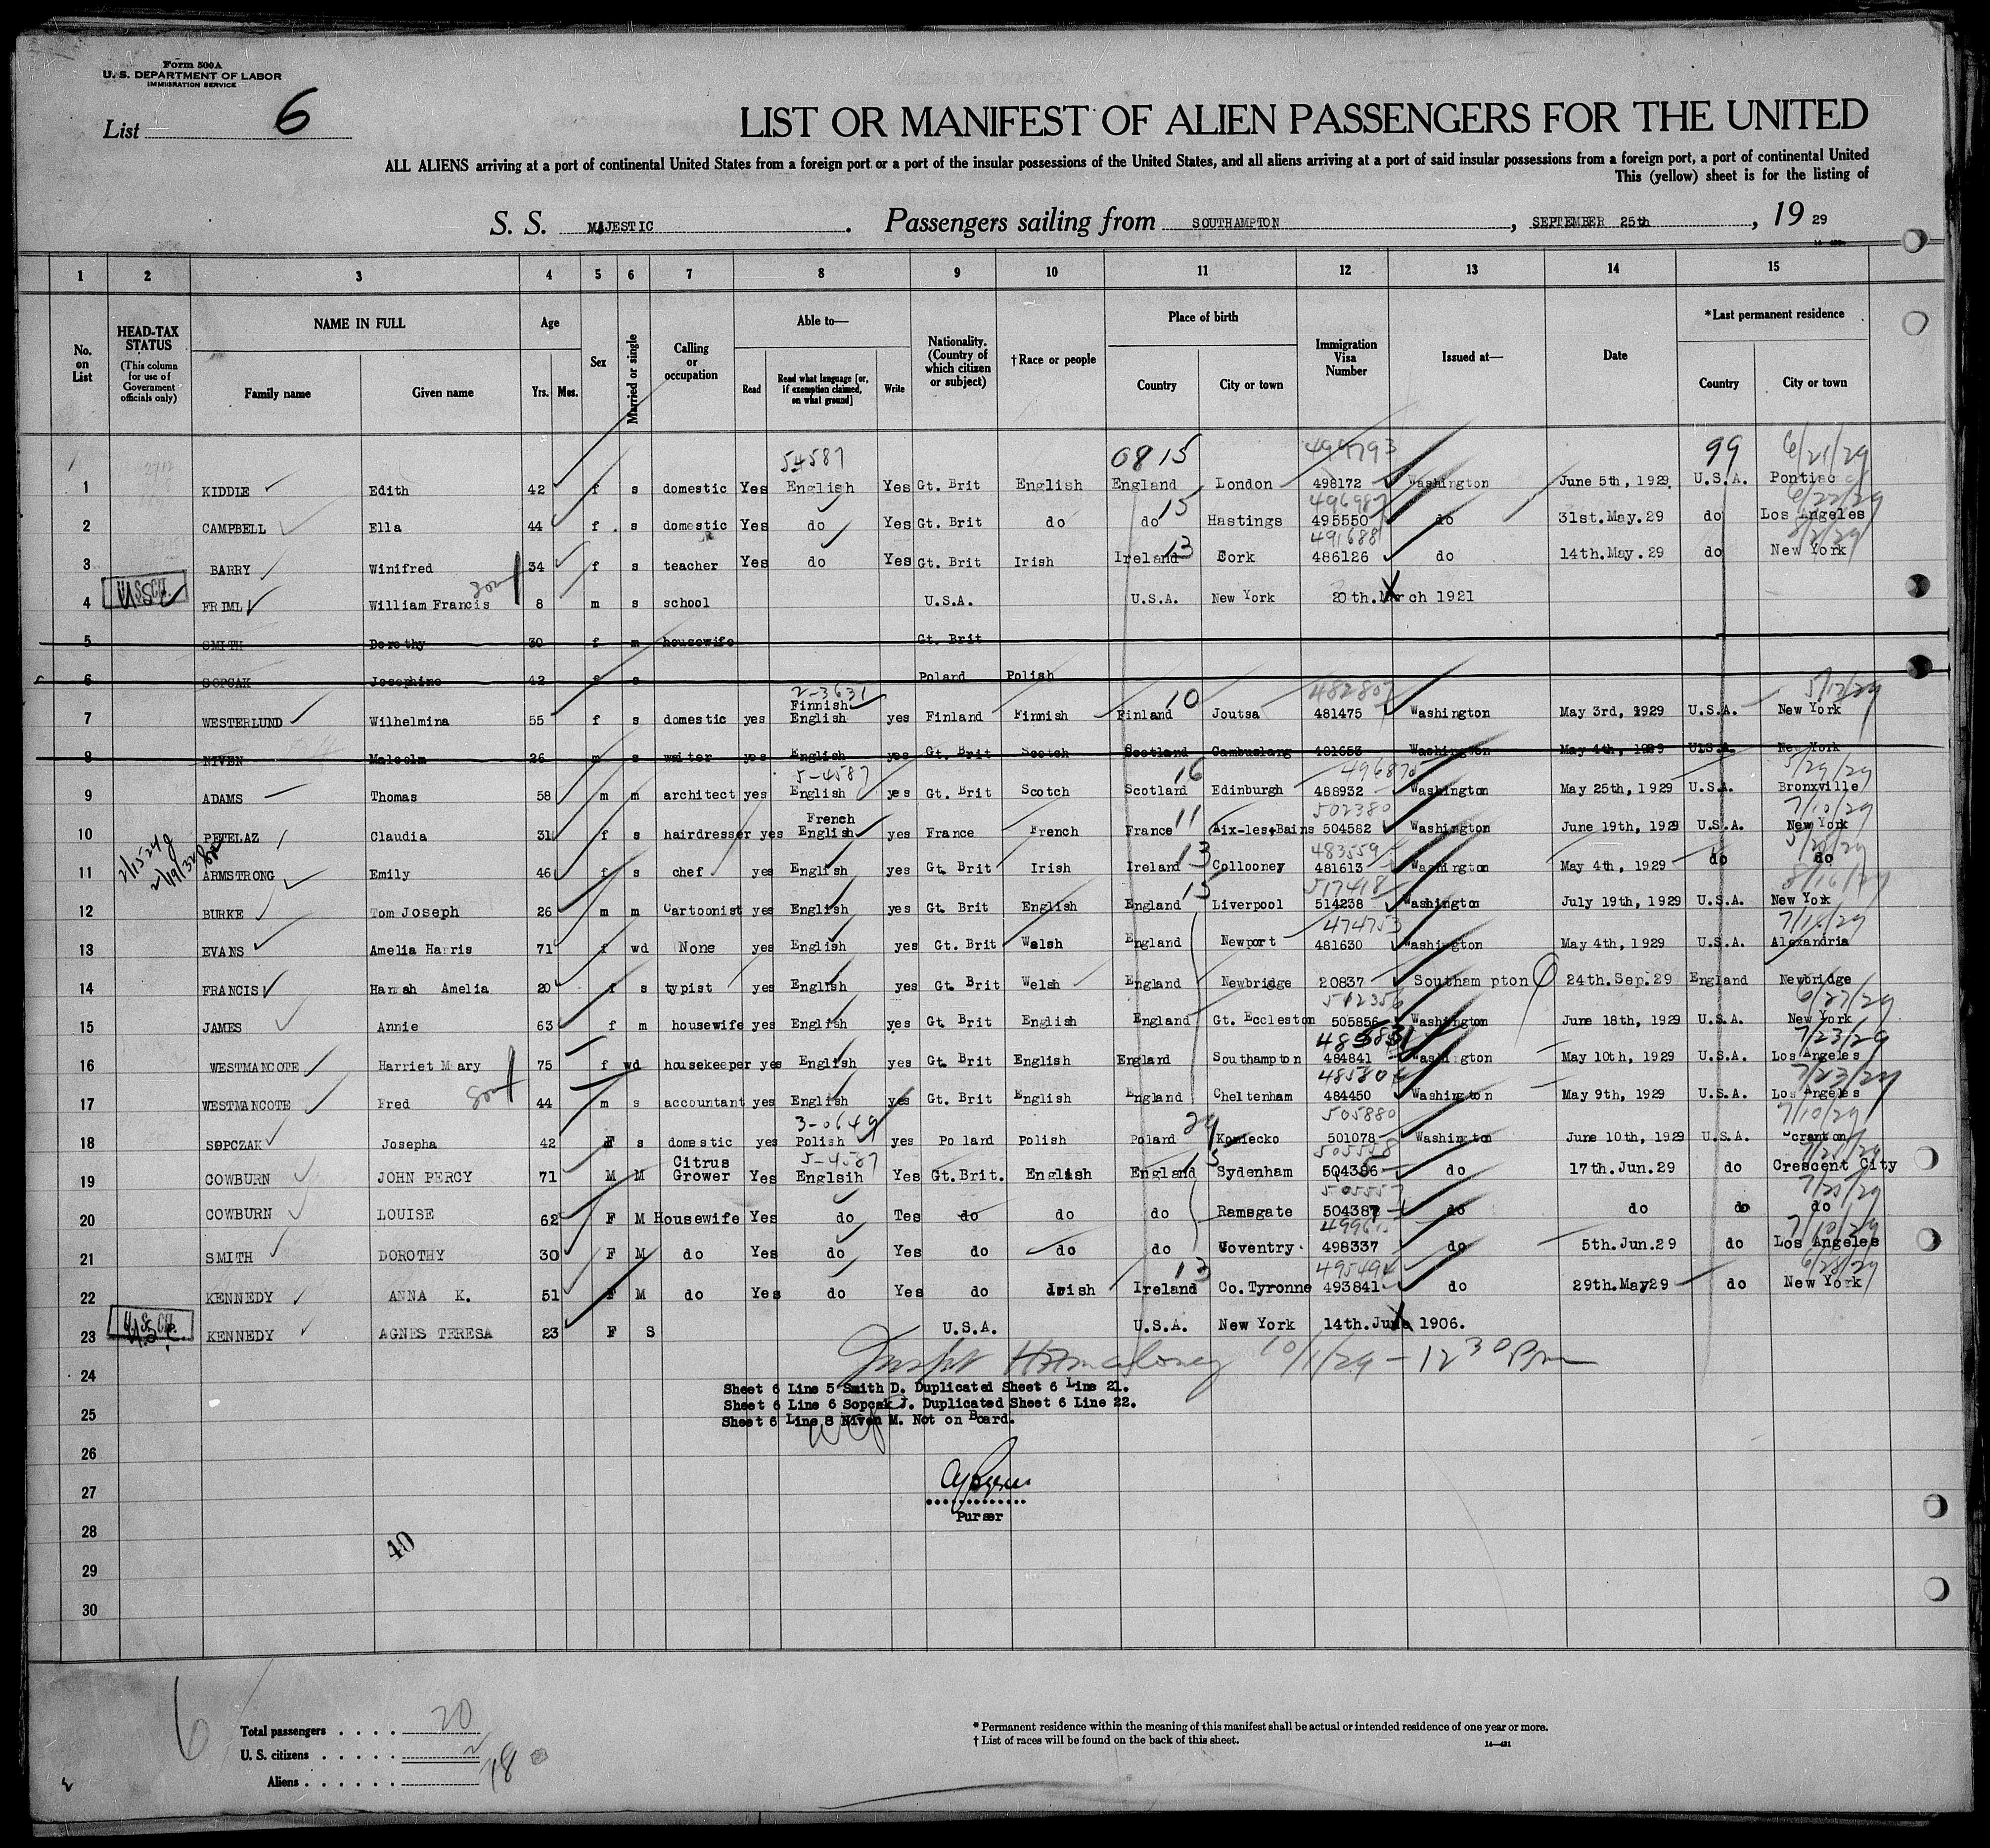 Form 500A
U. S. DEPARTMENT OF LABOR
IMMIGRATION SERVICE
List 6
LIST OR MANIFEST OF ALIEN PASSENGERS FOR THE UNITED
ALL ALIENS arriving at a port of continental United States from a foreign port or a port of the insular possessions of the United States, and all aliens arriving at a port of said insular possessions from a foreign port, a port of continental United
This (yellow) sheet is for the listing of
S. S. MAJESTIC. Passengers sailing from SOUTHAMPTON, SEPTEMBER 25th, 19 29
1 2 3 4 5 6 7 8 9 10 11 12 13 14 15
No. on List
HEAD-TAX STATUS
(This column for use of Government officials only)
NAME IN FULL
Family name
Given name
Age
Yrs. Mos.
Sex
Married or single
Calling or occupation
Able to—
Read
Read what language [or, if exemption claimed, on what ground]
Write
Nationality. (Country of which citizen or subject)
†Race or people
Place of birth
Country
City or town
Immigration Visa Number
Issued at—
Date
*Last permanent residence
Country
City or town
54587 0815 499793 99 6/21/29
1 KIDDLE Edith 42 f s domestic Yes English Yes Gt. Brit English England London 498172 Washington June 5th, 1929 U.S.A. Pontiac
15 496987 6/22/29
2 CAMPBELL Ella 44 f s domestic Yes do Yes Gt. Brit do do Hastings 495550 do 31st.May.29 do Los Angeles
13 491688
3 BARRY Winifred 34 f s teacher Yes do Yes Gt. Brit Irish Ireland Cork 486126 do 14th.May.29 do New York
U.S.C.
4 FRIML William Francis 8 m s school U.S.A. U.S.A. New York 20th.March 1921
5 SMITH Dorothy 30 f m housewife Gt. Brit
6 SOPCAK Josephine 42 f s Poland Polish
2-3631 10 482807 5/12/29
Finnish
7 WESTERLUND Wilhelmina 55 f s domestic yes English yes Finland Finnish Finland Joutsa 481475 Washington May 3rd, 1929 U.S.A. New York
8 NIVEN Malcolm 26 m s waiter yes English yes Gt. Brit Scotch Scotland Cambuslang 481653 Washington May 4th, 1929 U.S.A. New York
5-4587 16 5/29/29
9 ADAMS Thomas 58 m m architect yes English yes Gt. Brit Scotch Scotland Edinburgh 488932 Washington May 25th, 1929 U.S.A. Bronxville
French 11 502380 7/10/29
10 PETELAZ Claudia 31 f s hairdresser yes English yes France French France Aix-les-Bains 504582 Washington June 19th, 1929 U.S.A. New York
13 483559
11 ARMSTRONG Emily 46 f s chef yes English yes Gt. Brit Irish Ireland Collooney 481613 Washington May 4th, 1929 do do
15 517418 8/16/29
12 BURKE Tom Joseph 26 m m Cartoonist yes English yes Gt. Brit English England Liverpool 514238 Washington July 19th, 1929 U.S.A. New York
474753 7/16/29
13 EVANS Amelia Harris 71 f wd None yes English yes Gt. Brit Welsh England Newport 481630 Washington May 4th, 1929 U.S.A. Alexandria
14 FRANCIS Hannah Amelia 20 f s typist yes English yes Gt. Brit Welsh England Newbridge 20837 Southam pton 24th.Sep.29 England Newbridge
512356 6/27/29
15 JAMES Annie 63 f m housewife yes English yes Gt. Brit English England Gt. Eccleston 505856 Washington June 18th, 1929 U.S.A. New York
7/23/29
16 WESTMANCOTE Harriet Mary 75 f wd housekeeper yes English yes Gt. Brit English England Southampton 484841 Washington May 10th, 1929 U.S.A. Los Angeles
485804 7/23/29
17 WESTMANCOTE Fred 44 m s accountant yes English yes Gt. Brit English England Cheltenham 484450 Washington May 9th, 1929 U.S.A. Los Angeles
3-0649 505880 7/10/29
18 SOPCZAK Josepha 42 F s domestic yes Polish yes Poland Polish Poland Koniecko 501078 Washington June 10th, 1929 U.S.A. Scranton
5-4587 15 505558
Citrus
19 COWBURN JOHN PERCY 71 M M Grower Yes Englsih Yes Gt. Brit. English England Sydenham 504386 do 17th.Jun.29 do Crescent City
505557
20 COWBURN LOUISE 62 F M Housewife Yes do Tes do do do Ramsgate 504387 do do do do
7/10/29
21 SMITH DOROTHY 30 F M do Yes do Yes do do do Coventry 498337 do 5th.Jun.29 do Los Angeles
13 6/28/29
22 KENNEDY ANNA K. 51 F M do Yes do Yes do Irish Ireland Co.Tyronne 493841 do 29th.May29 do New York
U.S.C.
23 KENNEDY AGNES TERESA 23 F S U.S.A. U.S.A. New York 14th.June 1906.
10/1/29 - 12 30 Pm
24
Sheet 6 Line 5 Smith D. Duplicated Sheet 6 Line 21.
Sheet 6 Line 6 Sopcak J. Duplicated Sheet 6 Line 22.
25
Sheet 6 Line 8 Niven M. Not on Board.
26
27
Purser
28
40
29
30
6
Total passengers . . . . 20
U. S. citizens . . . . . 2
Aliens . . . . . . 18
* Permanent residence within the meaning of this manifest shall be actual or intended residence of one year or more.
† List of races will be found on the back of this sheet.
14—431